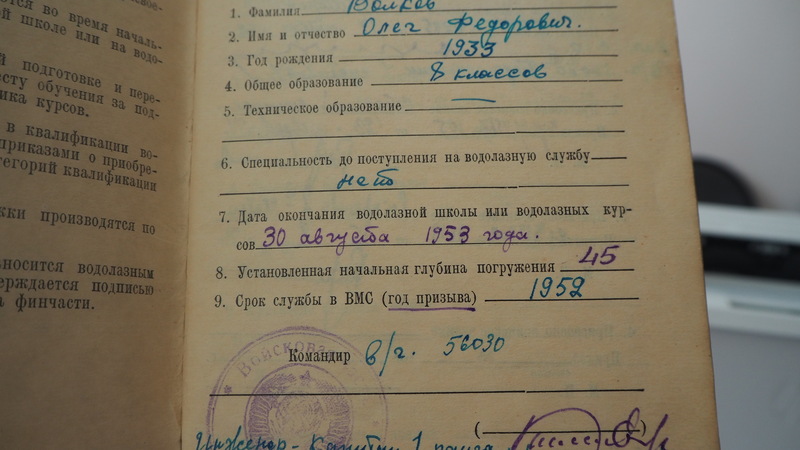 ся во время началь-
й школе или на водо-
й подготовке и пере-
есту обучения за под-
ика курсов.
в квалификации во-
приказами о приобре-
тегорий квалификации
жки производятся по
водолазным
ерждается подписью
а финчасти.
1. Фамилия Волков
2. Имя и отчество Олег Федорович.
3. Год рождения 1933
4. Общее образование 8 классов
5. Техническое образование —
6. Специальность до поступления на водолазную службу
нет
7. Дата окончания водолазной школы или водолазных кур-
сов 30 августа 1953 года.
8. Установленная начальная глубина погружения 45
9. Срок службы в ВМС (год призыва) 1952
Командир в/ч. 56030
Войсковая
Инженер-капитан 1 ранга